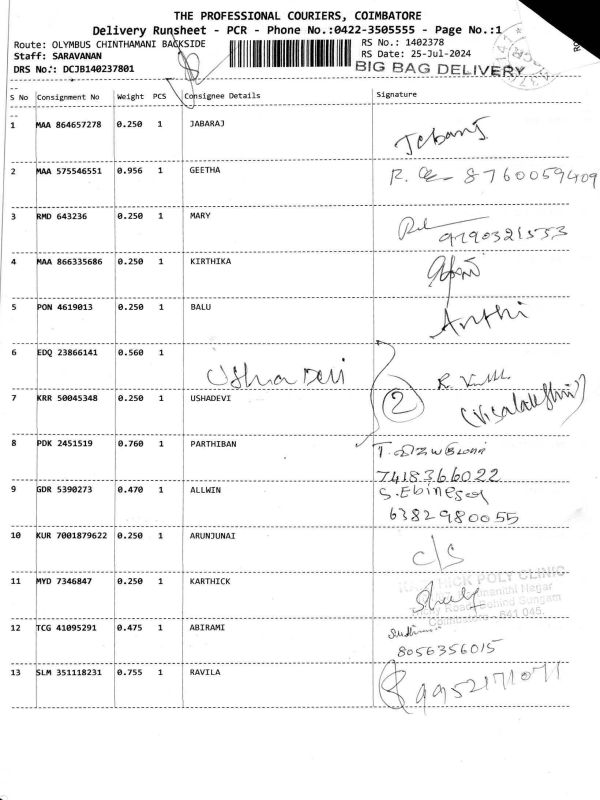 THE PROFESSIONAL COURIERS, COIMBATORE
Delivery Runsheet - PCR - Phone No.:0422-3505555 - Page No.:1
Route: OLYMBUS CHINTHAMANI BACKSIDE RS No.: 1402378
Staff: SARAVANAN RS Date: 25-Jul-2024
DRS No.: DCJB140237801 BIG BAG DELIVERY
S No Consignment No Weight PCS Consignee Details Signature
1 MAA 864657278 0.250 1 JABARAJ
2 MAA 575546551 0.956 1 GEETHA R. 8760059409
3 RMD 643236 0.250 1 MARY
9790321553
4 MAA 866335686 0.250 1 KIRTHIKA
5 PON 4619013 0.250 1 BALU
6 EDQ 23866141 0.560 1
Usha Devi
7 KRR 50045348 0.250 1 USHADEVI 2 (Visalakshni)
8 PDK 2451519 0.760 1 PARTHIBAN
7418366022
9 GDR 5390273 0.470 1 ALLWIN S. Ebinesar
6382980055
10 KUR 7001879622 0.250 1 ARUNJUNAI c/s
11 MYD 7346847 0.250 1 KARTHICK
POLY CLINIC
Nagar
Behind Sungam
641 045.
12 TCG 41095291 0.475 1 ABIRAMI
8056356015
13 SLM 351118231 0.755 1 RAVILA 9952171071